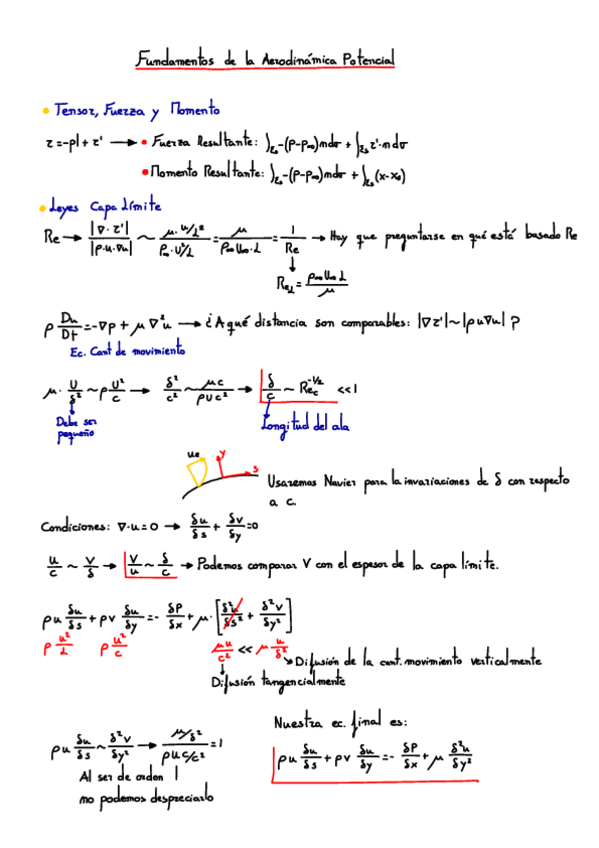 Fundamentos de la Aerodinámica Potencial
• Tensor, Fuerza y Momento
τ=-pI+τ' → • Fuerza Resultante: ∫Σs-(p-p∞)ndσ + ∫Σsτ'·ndσ
• Momento Resultante: ∫Σs-(p-p∞)ndσ + ∫Σs(x-x₀)
• Leyes Capa Límite
Re → |∇·τ'|/|ρ·u·∇u| ~ (μ·u/L²)/(ρ∞·U²/L) = μ/(ρ∞U∞·L) = 1/Re → Hay que preguntarse en qué está basado Re
↓
Re_L = ρ∞U∞L/μ
ρ Du/Dt = -∇p + μ∇²u → ¿A qué distancia son comparables: |∇τ'|~|ρu∇u| ?
Ec. Cant de movimiento
μ·U/δ² ~ ρU²/c → δ²/c² ~ μc/(ρUc²) → δ/c ~ Re_c^-1/2 <<1
Debe ser
pequeño
Longitud del ala
ue y s
Usaremos Navier para la invariaciones de δ con respecto
a c.
Condiciones: ∇·u=0 → δu/δs + δv/δy =0
u/c ~ v/δ → v/u ~ δ/c → Podemos comparar V con el espesor de la capa límite.
ρu δu/δs + ρv δu/δy = - δP/δx + μ·[δ²u/δs² + δ²v/δy²]
ρ u²/L ρ u²/c μu/c² << μ u/δ²
Difusión de la cant. movimiento verticalmente
Difusión tangencialmente
Nuestra ec. final es:
ρu δu/δs ~ δ²v/δy² → (μ/δ²)/(ρUc/c²) =1
ρu δu/δs + ρv δu/δy = - δP/δx + μ δ²u/δy²
Al ser de orden 1
no podemos despreciarlo